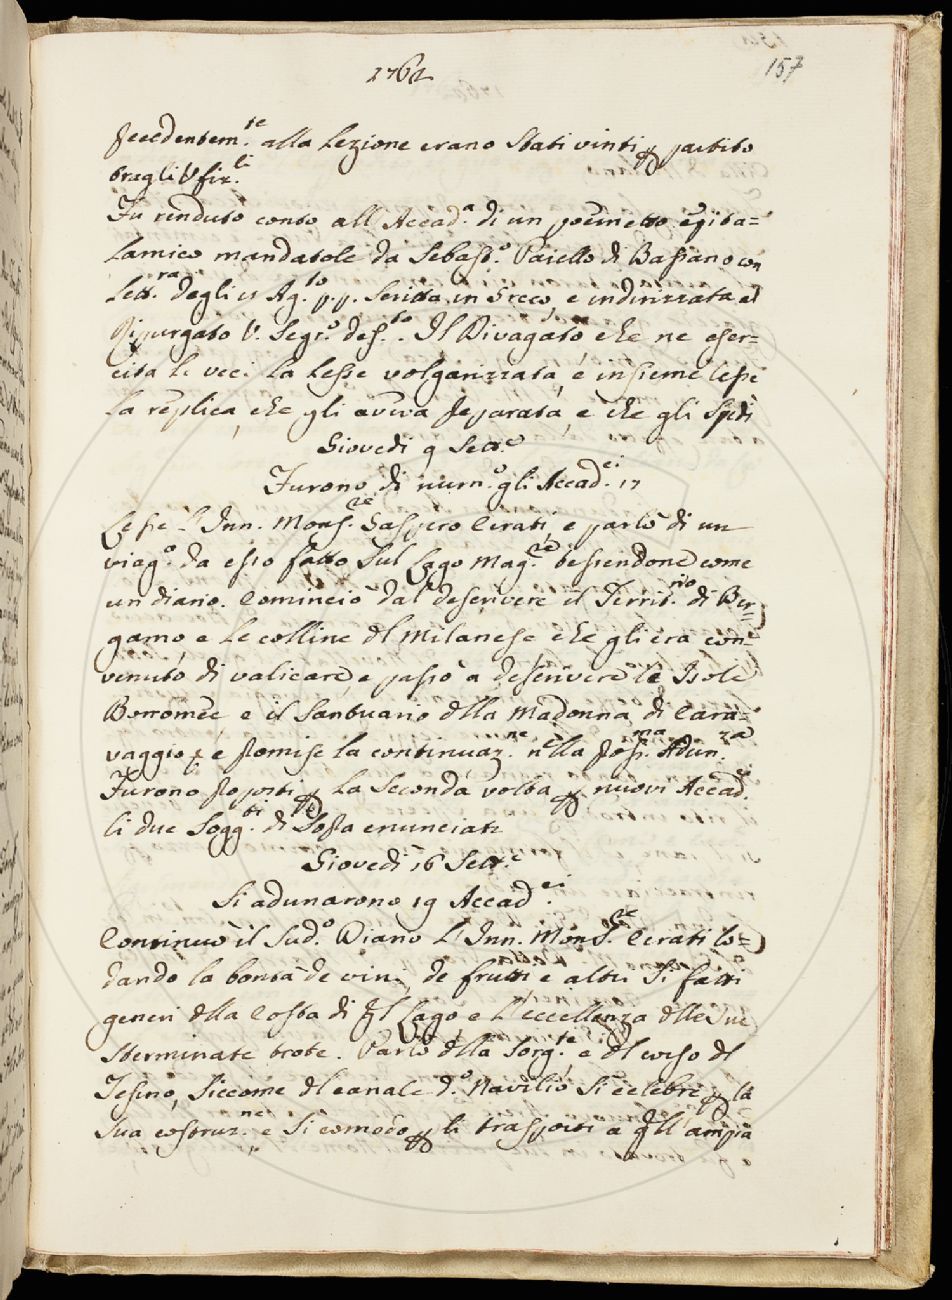 1762
157
precedentem.te alla Lezione erano Stati vinti p partito
tragli Ufiz.li
Fu renduto conto all'Accad.a di un poemetto epita=
lamico mandatole da Sebast.o Paiello di Bassano con
Lett.ra degli 11 Ag.to p.p. Scritta in Greco, e indirizzata al
Ripurgato V. Segr.o def.to. Il Divagato che ne eser=
cita le veci la Lesse volgarizzata, e insieme lesse
la replica, che gli aveva preparata, e che gli Spedì
Giovedì 9 Sett.e
Furono di num.o gli Accad.ci 17
Lesse l'Inn. Mons.re Gaspero Cerati, e parlò di un
viag.o da esso fatto Sul Lago Mag.re tessendone come
un diario. Cominciò dal descrivere il Territ.rio di Ber=
gamo, e le colline dl Milanese che gli era con=
venuto di valicare, e passò a descrivere le Isole
Borromee, e il Santuario dlla Madonna di Cara=
vaggio; e promise la continuaz.ne nlla pross.ma Adun.za
Furono proposti p la Seconda volta p nuovi Accad.ci
li due Sogg.ti di Sopra enunciati
Giovedì 16 Sett.e
Si adunarono 19 Accad.ci
Continuò il Sud.o Diario L'Inn. Mons.re Cerati lo=
dando la bontà de vini, de frutti e altri Sì fatti
generi dlla Costa di ql Lago, e l'eccellenza dlle Sue
sterminate trote. Parlò dlla Sorg.te e dl corso dl
Tesino, Siccome dl canale d.o Navilio Sì celebre p la
Sua costruz.ne e Sì comodo p li trasporti a qll'ampia